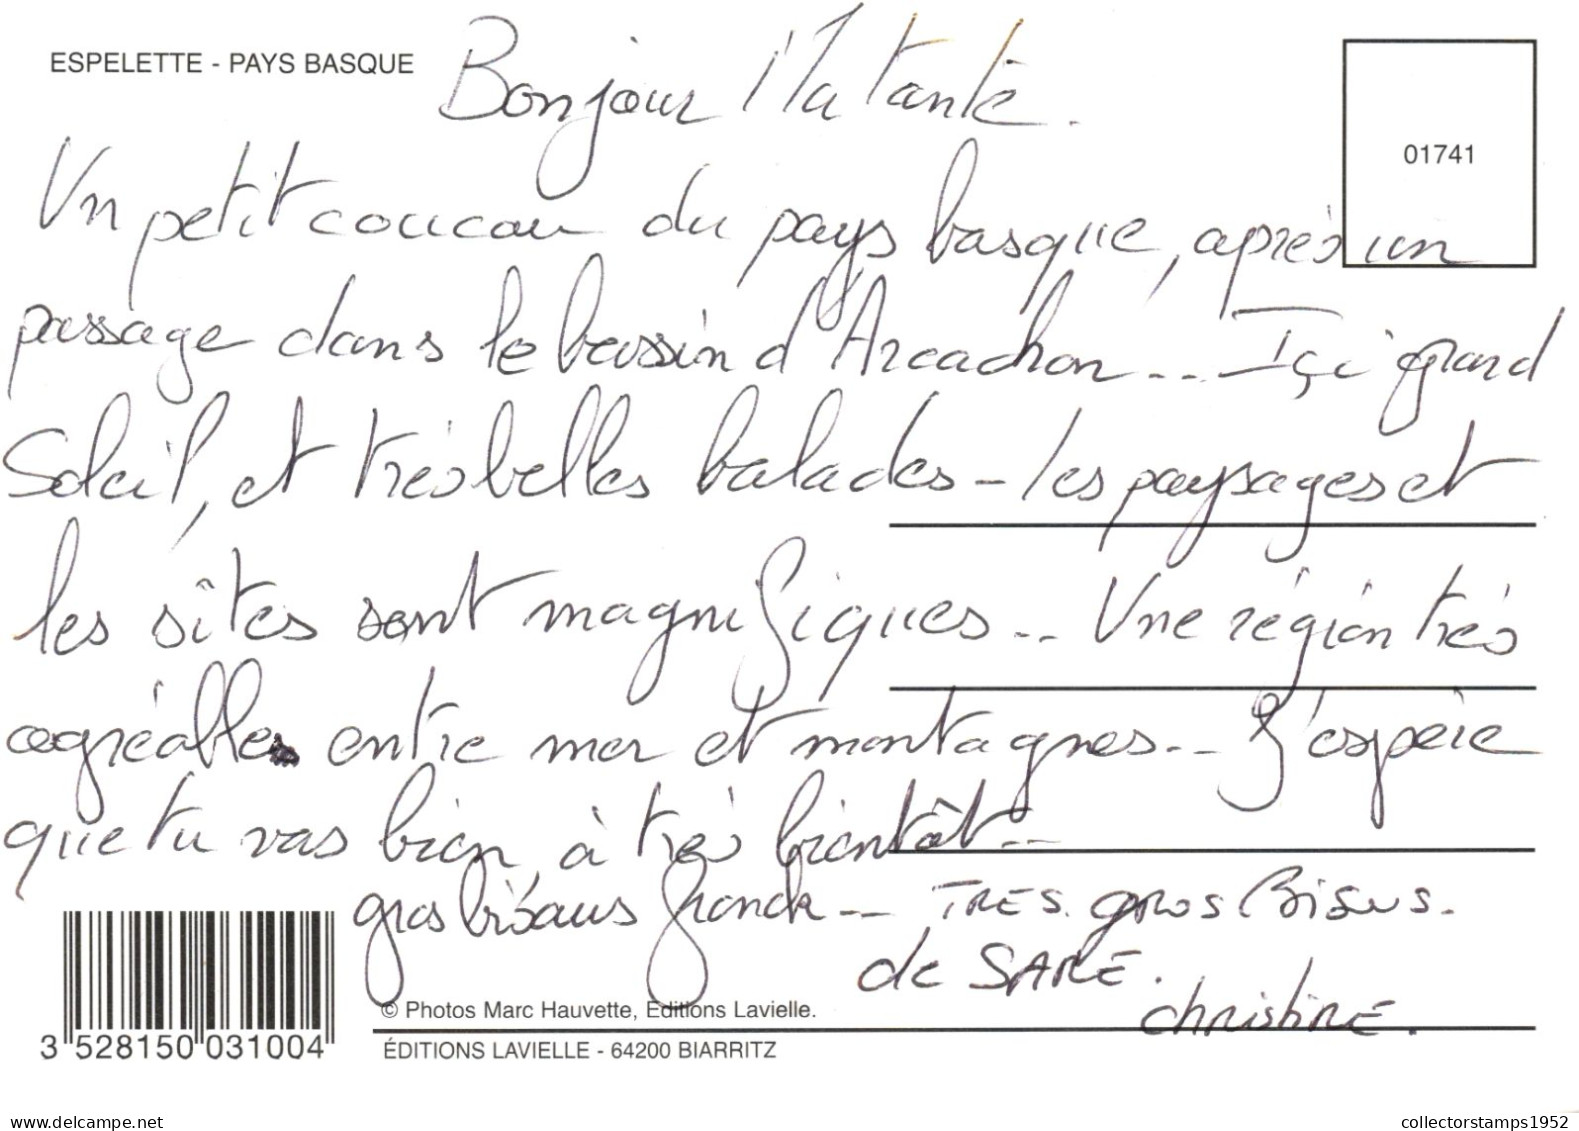 ESPELETTE - PAYS BASQUE
Bonjour Ma tante.
01741
Un petit coucou du pays basque, après un
passage dans le bassin d'Arcachon... Içi grand
Soleil, et très belles balades - les paysages et
les sîtes sont magnifiques... Une région très
agréable entre mer et montagnes... J'espère
que tu vas bien, à très bientôt...
gros bisous Franck... TRES gros Bisous.
de SARE.
christine.
© Photos Marc Hauvette, Editions Lavielle.
3 528150 031004
ÉDITIONS LAVIELLE - 64200 BIARRITZ
www.delcampe.net
collectorstamps1952